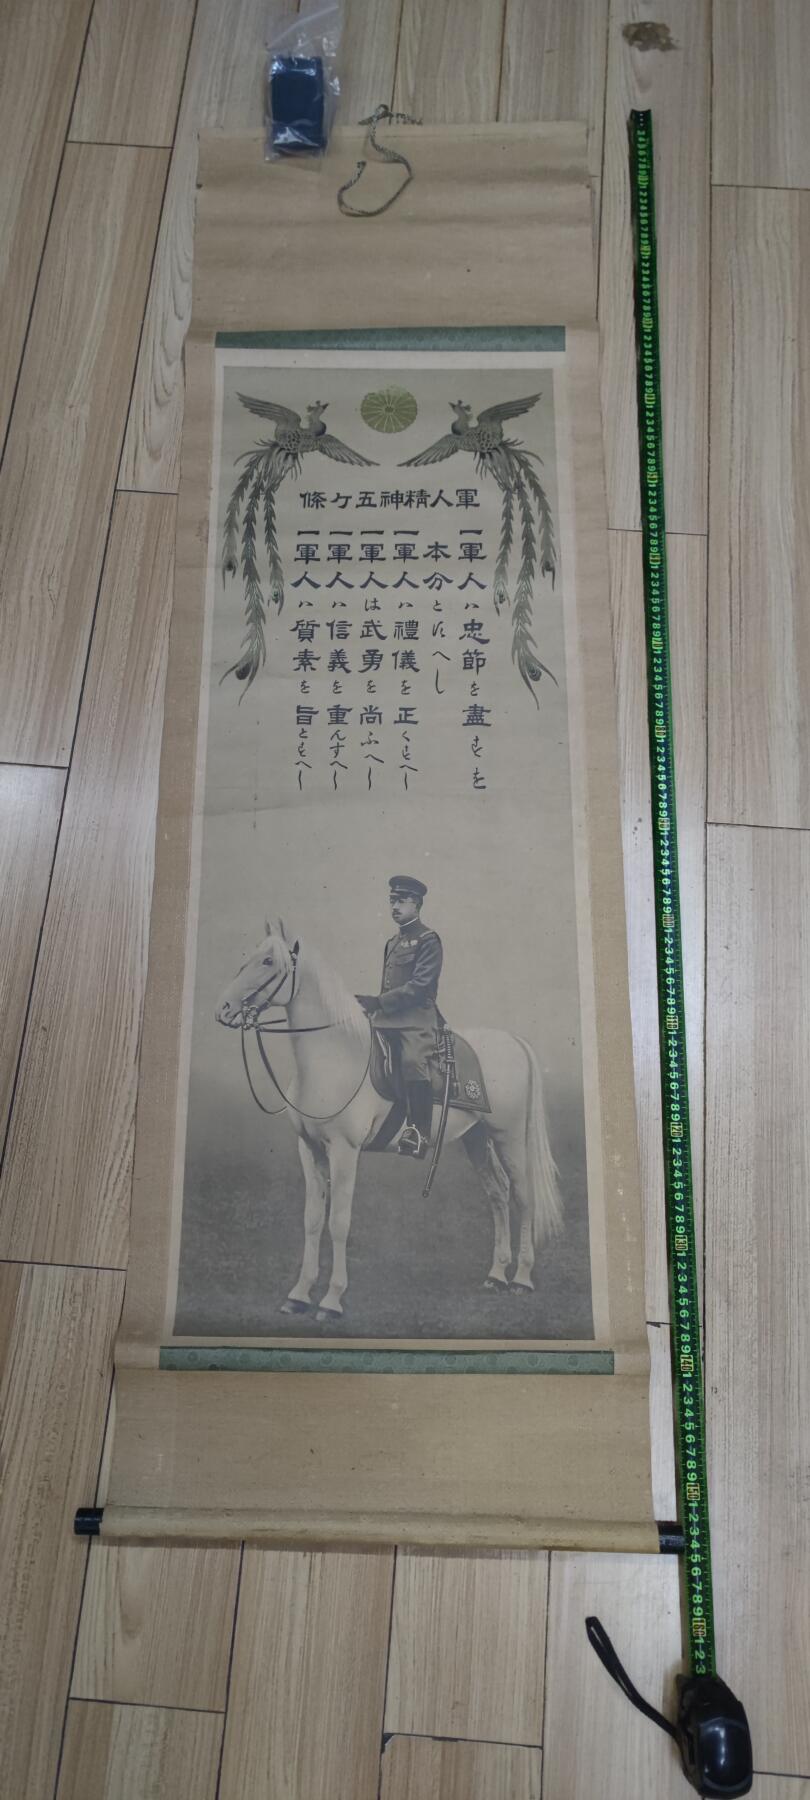 軍人精神五ケ條
一軍人ハ忠節を盡すを
本分とすへし
一軍人ハ禮儀を正くすへし
一軍人は武勇を尚ふへし
一軍人ハ信義を重んすへし
一軍人ハ質素を旨とすへし